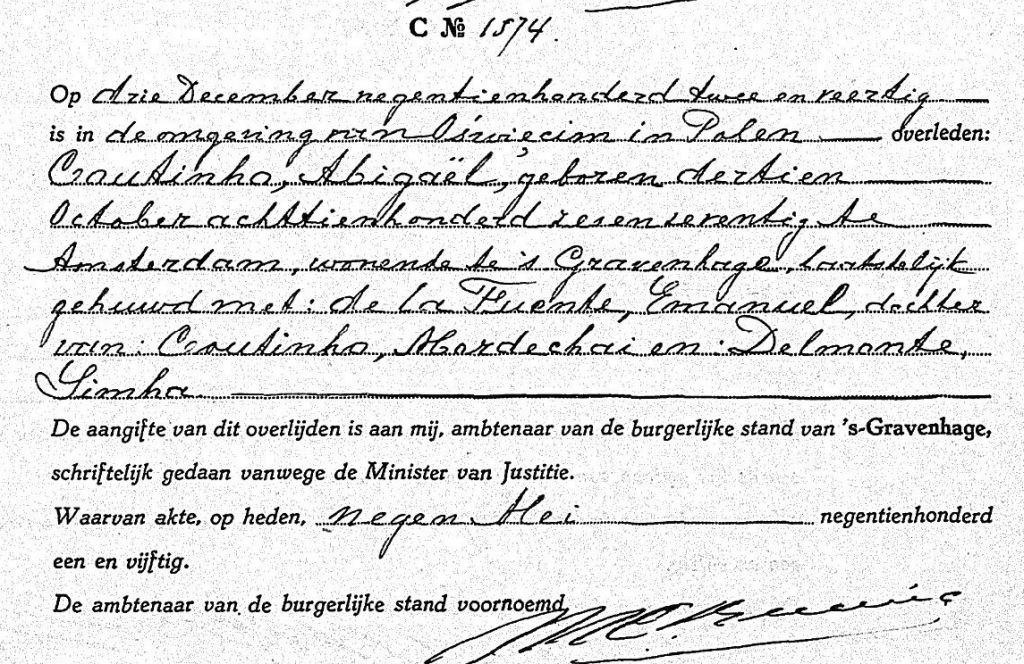 C № 1574.
Op drie December negentienhonderd twee en veertig
is in de omgeving van Oświęcim in Polen overleden:
Coutinho, Abigaël, geboren dertien
October achttienhonderd zesenzeventig te
Amsterdam, wonende te 's Gravenhage, laatstelijk
gehuwd met: de la Fuente, Emanuel, dochter
van: Coutinho, Mordechai en: Delmonte,
Simha
De aangifte van dit overlijden is aan mij, ambtenaar van de burgerlijke stand van 's-Gravenhage,
schriftelijk gedaan vanwege de Minister van Justitie.
Waarvan akte, op heden, negen Mei negentienhonderd
een en vijftig.
De ambtenaar van de burgerlijke stand voornoemd,